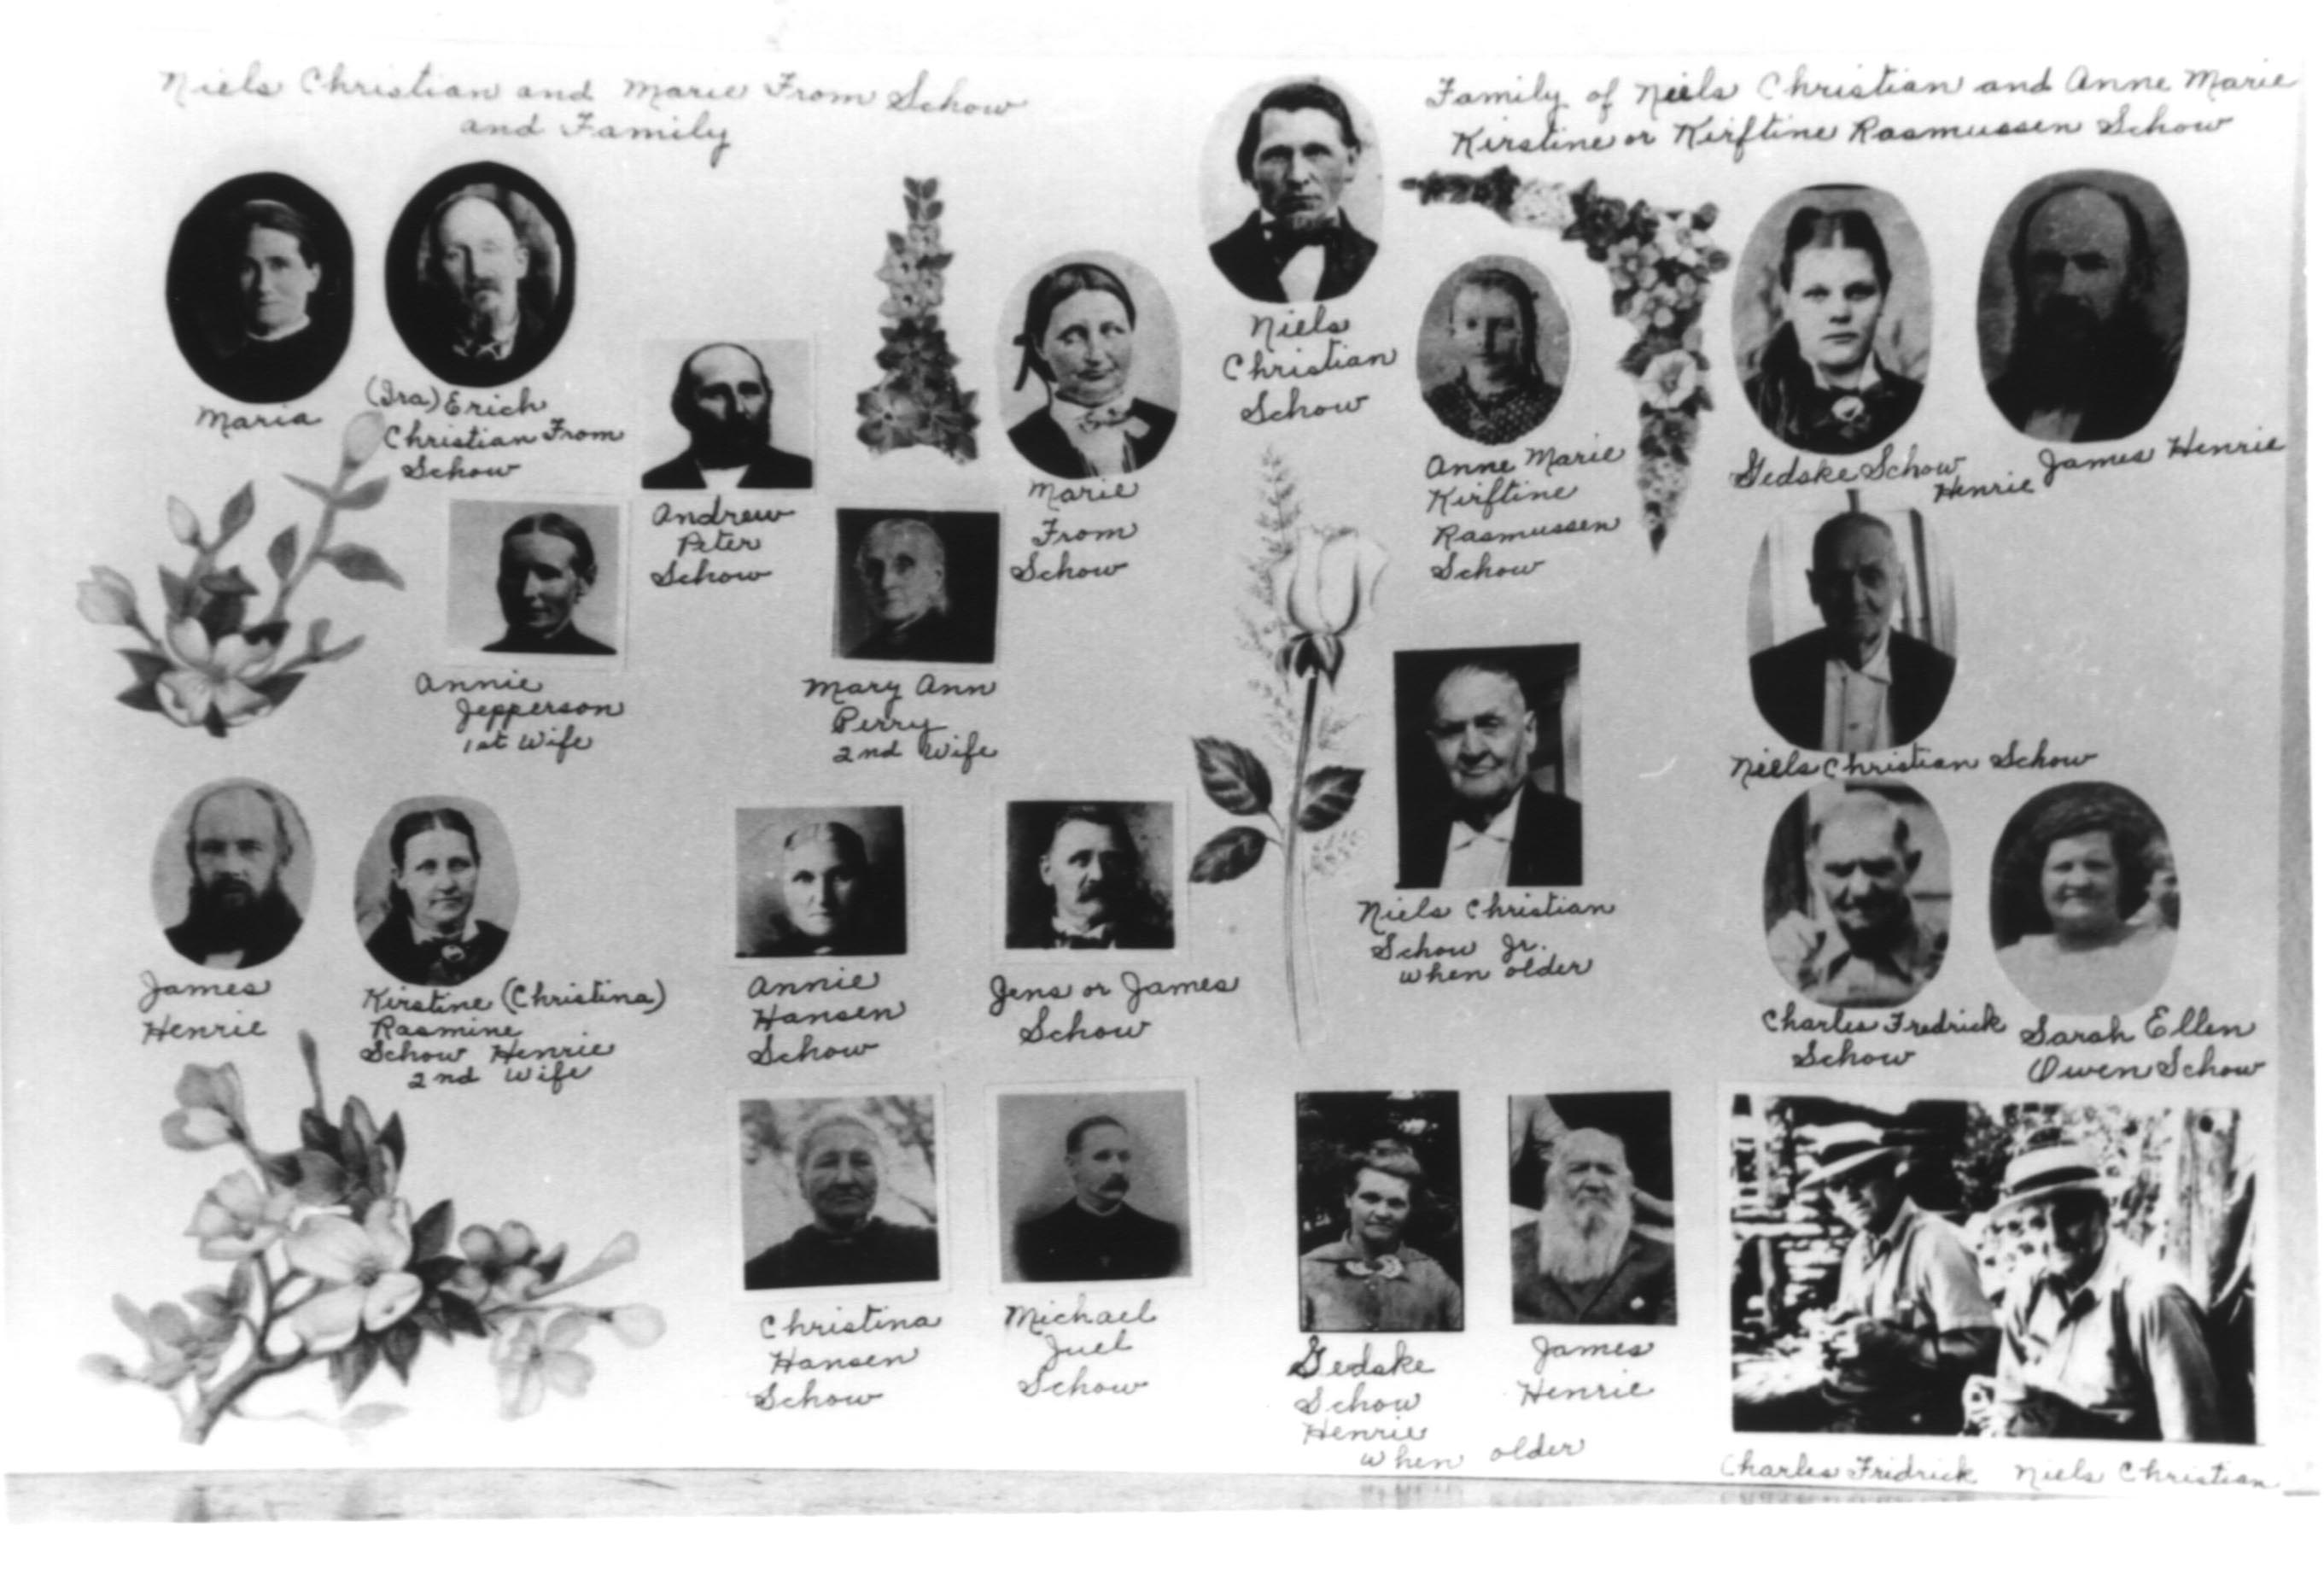 Niels Christian and Marie From Schow
and Family
Family of Niels Christian and Anne Marie
Kirstine or Kirftine Rasmussen Schow
Maria
(Ira) Erich
Christian From
Schow
Andrew
Peter
Schow
Marie
From
Schow
Niels
Christian
Schow
Anne Marie
Kirftine
Rasmussen
Schow
Gedske Schow
Henrie
James Henrie
Annie
Jepperson
1st Wife
Mary Ann
Perry
2nd Wife
Niels Christian
Schow Jr.
when older
Niels Christian Schow
James
Henrie
Kirstine (Christina)
Rasmine
Schow Henrie
2nd Wife
Annie
Hansen
Schow
Jens or James
Schow
Charles Fredrick
Schow
Sarah Ellen
Owen Schow
Christina
Hansen
Schow
Michael
Juel
Schow
Gedske
Schow
Henrie
when older
James
Henrie
Charles Fridrick
Niels Christian